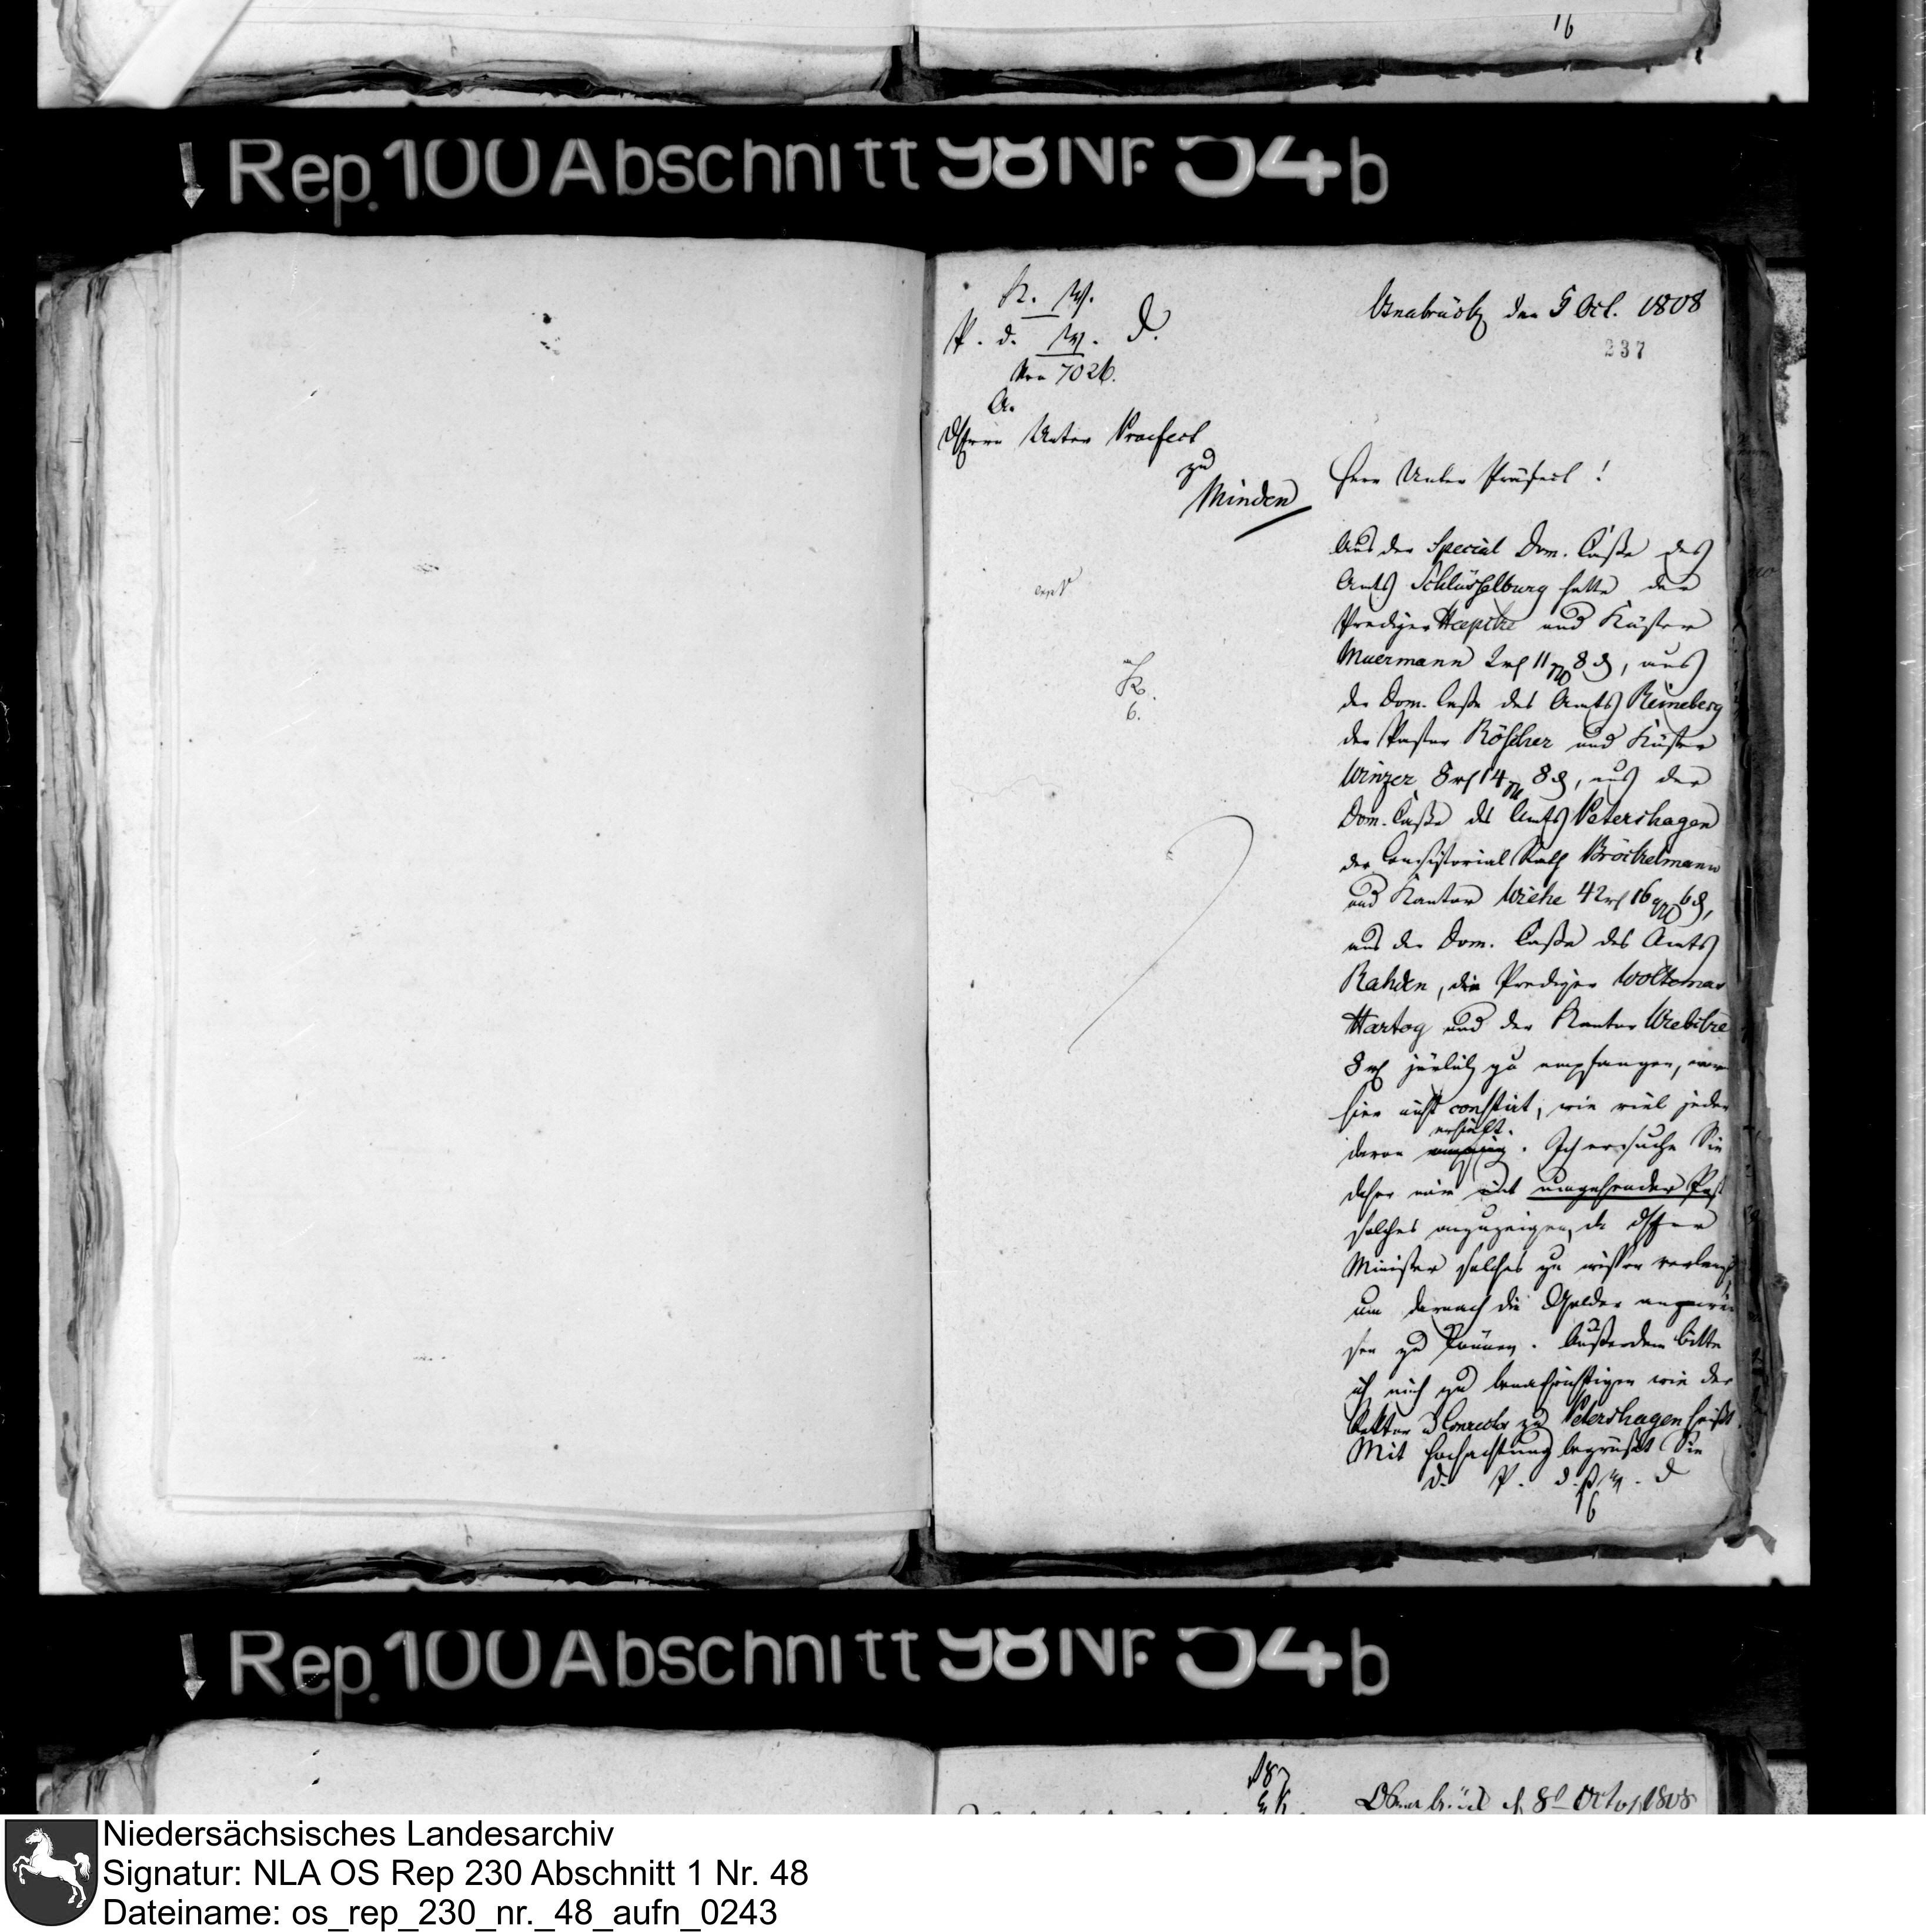 16
Rep. 100 Abschnitt 98 Nr. 54 b
K. W.
P. d. W. D.
Nro 7026.
A.
Herrn Unter Praefect
zu
Minden
Osnabrück den 5 Oct. 1808
237
Herr Unter Präfect!
Aus der Special Dom. Casse des
Amts Schlüsselburg hatte der
Prediger und Küster
Muermann 2 rth 11 gr 8 d, aus
der Dom. Casse des Amts Reineberg
der Pastor Röscher und Küster
Winzer 8 rth 14 gr 8 d, aus der
Dom. Casse des Amts Petershagen
der Consistorial Rath Bröckelmann
und Kantor Wiehe 42 rth 16 gr 6 d,
aus der Dom. Casse des Amts
Rahden, die Prediger Woltemas
Hartog und der Kantor
8 rth järlich zu empfangen,
hier nicht constirt, wie viel jeder
erhielt.
davon . Ich ersuche Sie
daher mir mit umgehender Post
solches anzuzeigen, da der Herr
Minister solches zu wissen verlangt
um darnach die Gelder anzuwei
sen zu können. Außerdem bitte
ich mich zu benachrichtigen wie der
Rektor u Conrector zu Petershagen heißt.
Mit Hochachtung begrüßt Sie
D. P. d. W. D
6
K.
6.
Rep. 100 Abschnitt 98 Nr. 54 b
Osnabrück d 8t Octo 1808
Niedersächsisches Landesarchiv
Signatur: NLA OS Rep 230 Abschnitt 1 Nr. 48
Dateiname: os_rep_230_nr._48_aufn_0243